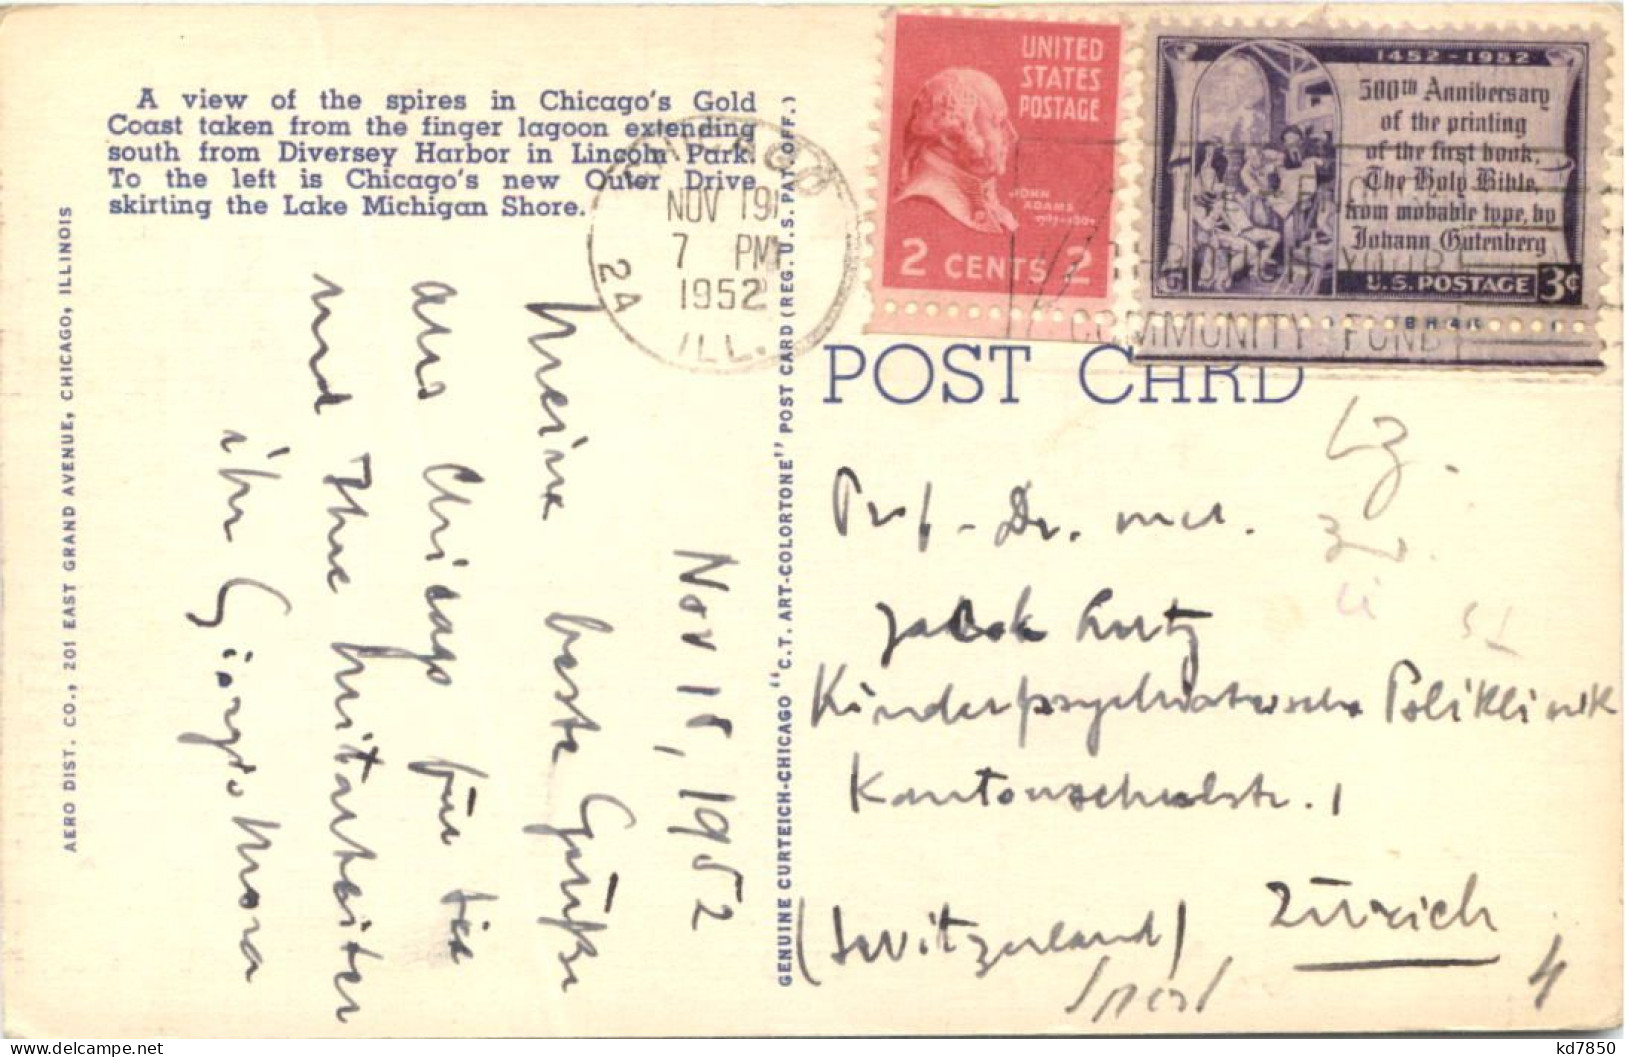 A view of the spires in Chicago's Gold
Coast taken from the finger lagoon extending
south from Diversey Harbor in Lincoln Park.
To the left is Chicago's new Outer Drive
skirting the Lake Michigan Shore.
AERO DIST. CO., 201 EAST GRAND AVENUE, CHICAGO, ILLINOIS
GENUINE CURTEICH-CHICAGO "C.T. ART-COLORTONE" POST CARD (REG. U.S. PAT. OFF.)
CHICAGO
NOV 19
7 PM
1952
2A
ILL.
UNITED
STATES
POSTAGE
JOHN
ADAMS
1797-1801
2 CENTS 2
1452-1952
500th Anniversary
of the printing
of the first book,
The Holy Bible,
from movable type, by
Johann Gutenberg
U.S. POSTAGE 3¢
THROUGH YOUR
COMMUNITY FUND
POST CARD
Nov 18, 1952
Meine beste Grüße
aus Chicago für Sie
und Ihre Mitarbeiter
ihr Giorgio
Prof. Dr. med.
Jakob Lutz
Kinderpsychiatrische Poliklinik
Kantonschulstr. 1
Zürich
(Switzerland)
delcampe.net
kd7850